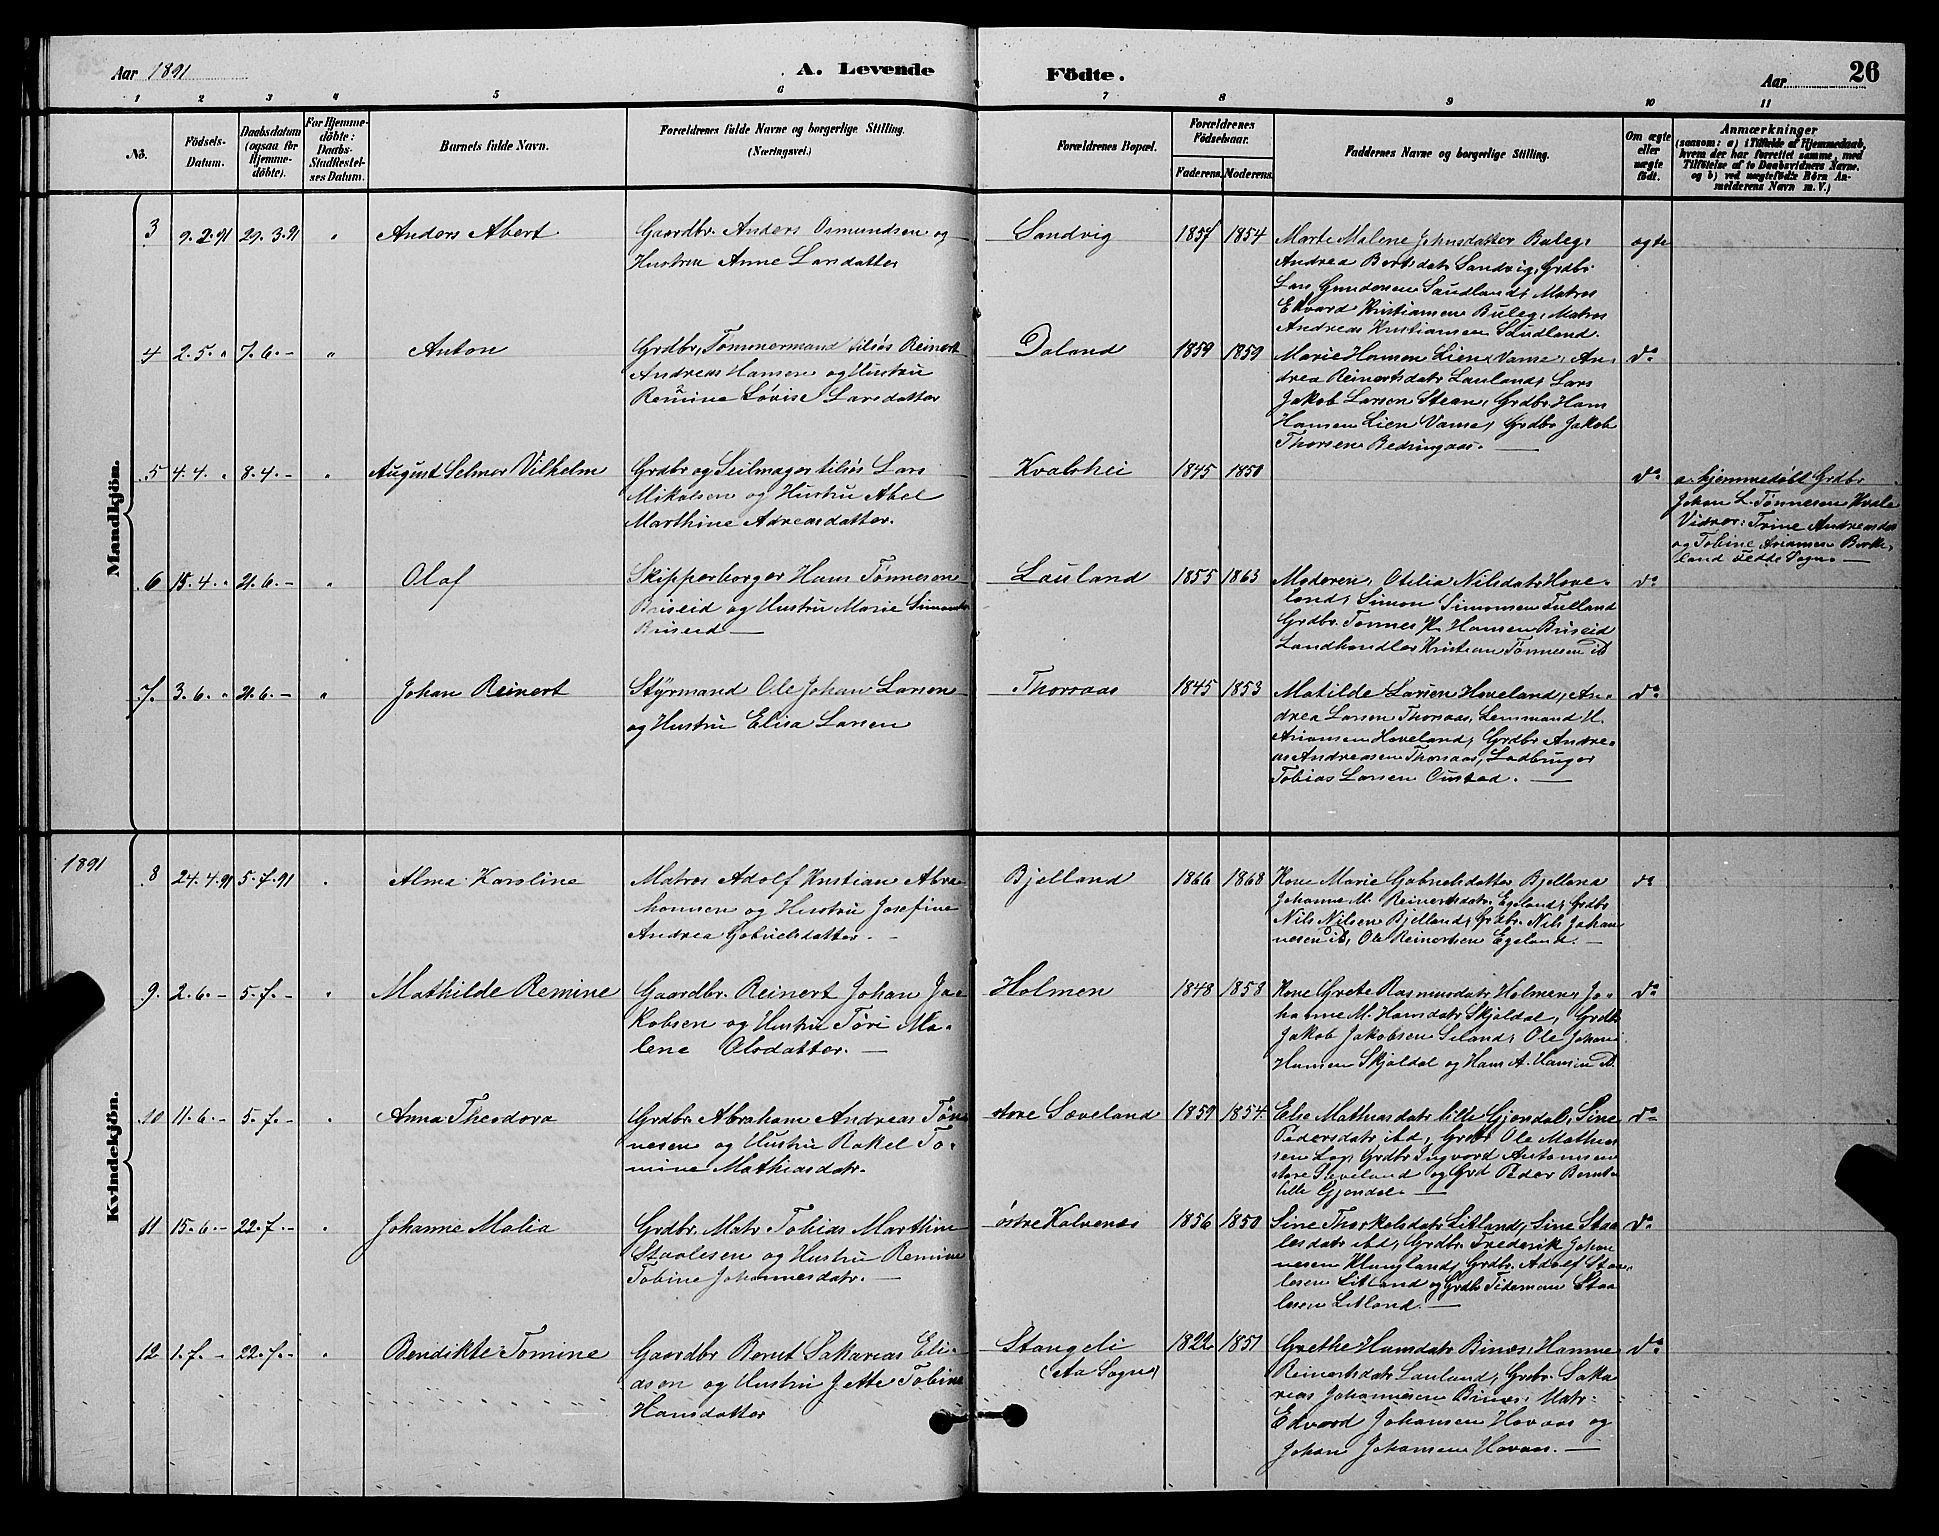 Aar 1891
A. Levende Födte.
Aar
26
1 2 3 4 5 6 7 8 9 10 11
No.
Födsels-Datum.
Daabsdatum (ogsaa for Hjemme-döbte).
For Hjemme-döbte: Daabs-Stadfæstel-ses Datum.
Barnets fulde Navn.
Forældrenes fulde Navne og borgerlige Stilling.
(Næringsvei.)
Forældrenes Bopæl.
Forældrenes Födselsaar.
Faderens. Moderens.
Faddernes Navne og borgerlige Stilling.
Om ægte eller uægte födt.
Anmærkninger
(saasom: a) i Tilfælde af Hjemmedaab,
hvem der har forrettet samme, med
Tilföielse af to Daabsvidners Navne,
og b) ved uægtefödte Börn An-
melderens Navn m. V.)
Mandkjön.
3 9.2.91 29.3.91 " Anders Abert
Gaardbr. Anders Osmundsen og
Hustru Anne Larsdatter
Sandvig 1857 1854
Marte Malene Johnsdatter Buleg,
Andrea Bertsdatr Sandvig, Grdbr
Lars Gundersen Saudland, Matros
Edvard Kristiansen Buleg, Matros
Andreas Kristiansen Saudland
ægte
4 2.5. " 7.6.- " Anton
Grdbr, Tømmermand tilsøs Reinert
Andreas Hansen og Hustru
Remine Lovise Larsdatter
Daland 1859 1859
Marie Hansen Lien, Vanse, An-
drea Reinertsdatr Lauland, Lars
Jakob Larsen Stean, Grdbr Hans
Hansen Lien Vanse, Grdbr Jakob
Thorsen Bedringaas. —
do
5 4.4. " 8.4.- " August Selmer Vilhelm
Grdbr og Seilmager tilsøs Lars
Mikalsen og Hustru Abel
Marthine Adreasdatter.
Kvalshei 1845 1850
do
a. hjemmedøbt Grdbr
Johan L. Tønnesen Kvale
Vidner: Trine Andreasdar
og Tobine Ariansen Birke,
land Fedde Sogn. —
6 15.4. " 21.6.- " Olaf
Skipperborger Hans Tønnesen
Briseid og Hustru Marie Simonsdr
Briseid —
Lauland 1855 1863
Moderen, Otilia Nilsdatr Hove-
land, Simon Simonsen Tulland
Grdbr. Tønnes K. Hansen Briseid
Landhandler Kristian Tønnesen ib
do
7. 3.6. " 21.6.- " Johan Reinert
Styrmand Ole Johan Larsen
og Hustru Elisa Larsen
Thorsaas 1845 1853
Matilde Larsen Hoveland, An-
drea Larsen Thorsaas, Lensmand M.
Ariansen Hoveland, Grdbr Andre-
as Andreasen Thorsaas, Ladbruger
Tobias Larsen Oustad. —
do
1891
Kvindekjön.
8 24.4.91 5.7.91 " Alma Karoline
Matros Adolf Kristian Abra-
hamsen og Hustru Josefine
Andrea Gabrielsdatter. —
Bjelland 1866 1868
Kone Marie Gabrielsdatter Bjelland
Johanne M. Reinertsdatr. Egeland, Grdbr
Nils Nilsen Bjelland, Grdbr. Nils Johan-
nesen ib, Ole Reinertsen Egeland. —
do
9. 2.6.- 5.7.- " Mathilde Remine
Gaardbr. Reinert Johan Ja-
kobsen og Hustru Tøri Ma-
lene Olsdatter. —
Holmen 1848 1858
Kone Grete Rasmusdatr Holmen, Jo-
hanne M. Hansdatr Skjoldal, Grdbr
Jakob Jakobsen Seland, Ole Johan
Hansen Skjoldal og Hans A. Hansen ib.
do
10 11.6.- 5.7.- " Anna Theodora
Grdbr Abraham Andreas Tøn-
nesen og Hustru Rakel To-
mine Mathiasdatr.
store Sæveland 1859 1854
Else Mathiasdatr lille Gjendal, Sine
Pedersdatr ibd, Grdbr Ole Mathias
sen Log, Grdbr Ingvard Antonsen
store Sæveland og Grd Peder Berntsen
lille Gjendal. —
do
11 15.6.- 22.7.- " Johanne Malia
Grdbr. Matr. Tobias Marthin
Staalesen og Hustru Remine
Tobine Johannesdatr. —
østre Kalvenes 1856 1850
Sine Thorkelsdatr Litland, Sine Staa-
lesdatr ibd, Grdbr. Frederik Johan
nesen Klungland, Grdbr. Adolf Staa-
lesen Litland og Grdbr Tideman Staa
lesen Litland. —
do
12 1.7.- 22.7.- " Bendikte Tomine
Gaardbr Bernt Sakarias Eli-
asen og Hustru Jette Tobine
Hansdatter
Stangeli
(Aa Sogn) 1822 1851
Grethe Hansdatr Birnes, Hanne
Reinertsdatr Lauland, Grdbr. Saka
rias Johannesen Birnes, Matr.
Edvard Johansen Hovaas og
Johan Johansen Hovaas. —
do